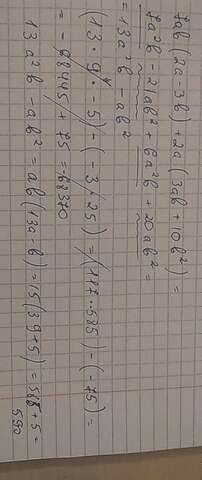 7ab(2a-3b)+2a(3ab+10b²)=
7a²b-21ab²+6a²b+20ab²=
=13a²b-ab²
(13·9·-5)-(-3·25)=(117·-585)-(-75)=
=-68445+75=68370
13a²b-ab²=ab(13a-b)=15(39+5)=585+5=
590